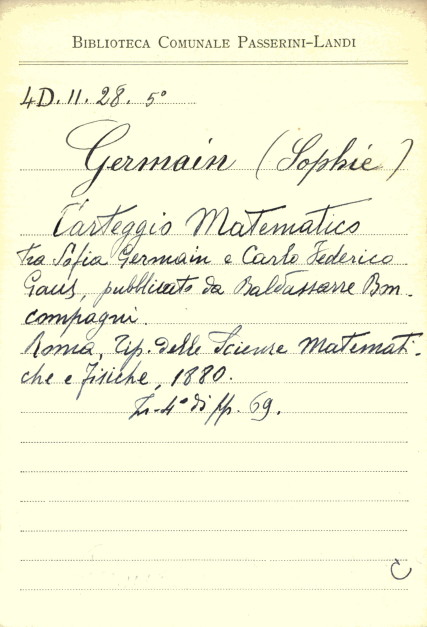 BIBLIOTECA COMUNALE PASSERINI-LANDI
4D.11.28. 5°
Germain (Sophie)
Carteggio Matematico
tra Sofia Germain e Carlo Federico
Gaus, pubblicato da Baldassarre Bon-
compagni.
Roma, Tip. delle Scienze Matemati-
che e Fisiche, 1880.
In-4° di pp. 69.
C